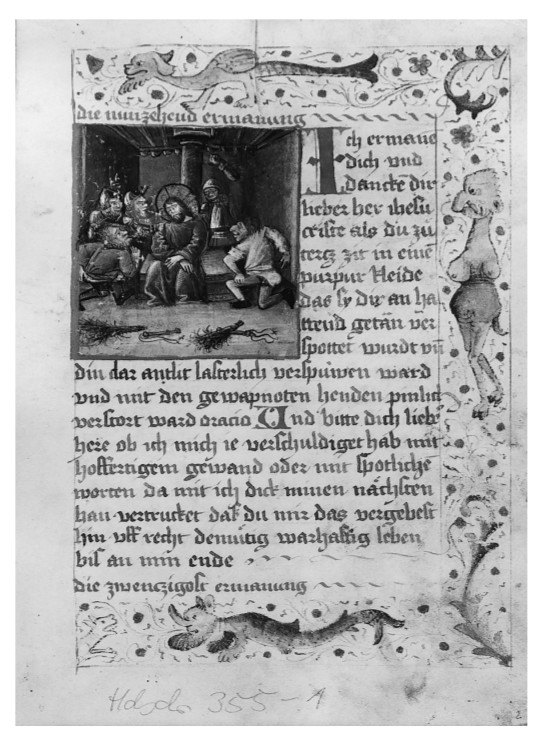 die nunzehend ermanung
Ich ermane
dich und
dancke dir
lieber her ihesu
criste als du zu
tercz zit in einē
purpur kleide
das sy dir an ha
ttend getān ver
spottet wurdt vn̄
din dar antlit lasterlich verspuwen ward
vnd mit den gewapnoten henden pinlich
verstort ward oracio Vnd bitte dich lieb
here ob ich mich ie verschuldiget hab mit
hoffertigem gewand oder mit spotliche
worten da mit ich dick minen nächsten
han vertrucket das du mir das vergebest
hin vff recht demutig warhafftig leben
bis an min ende
die zwenczigost ermanung
355-1